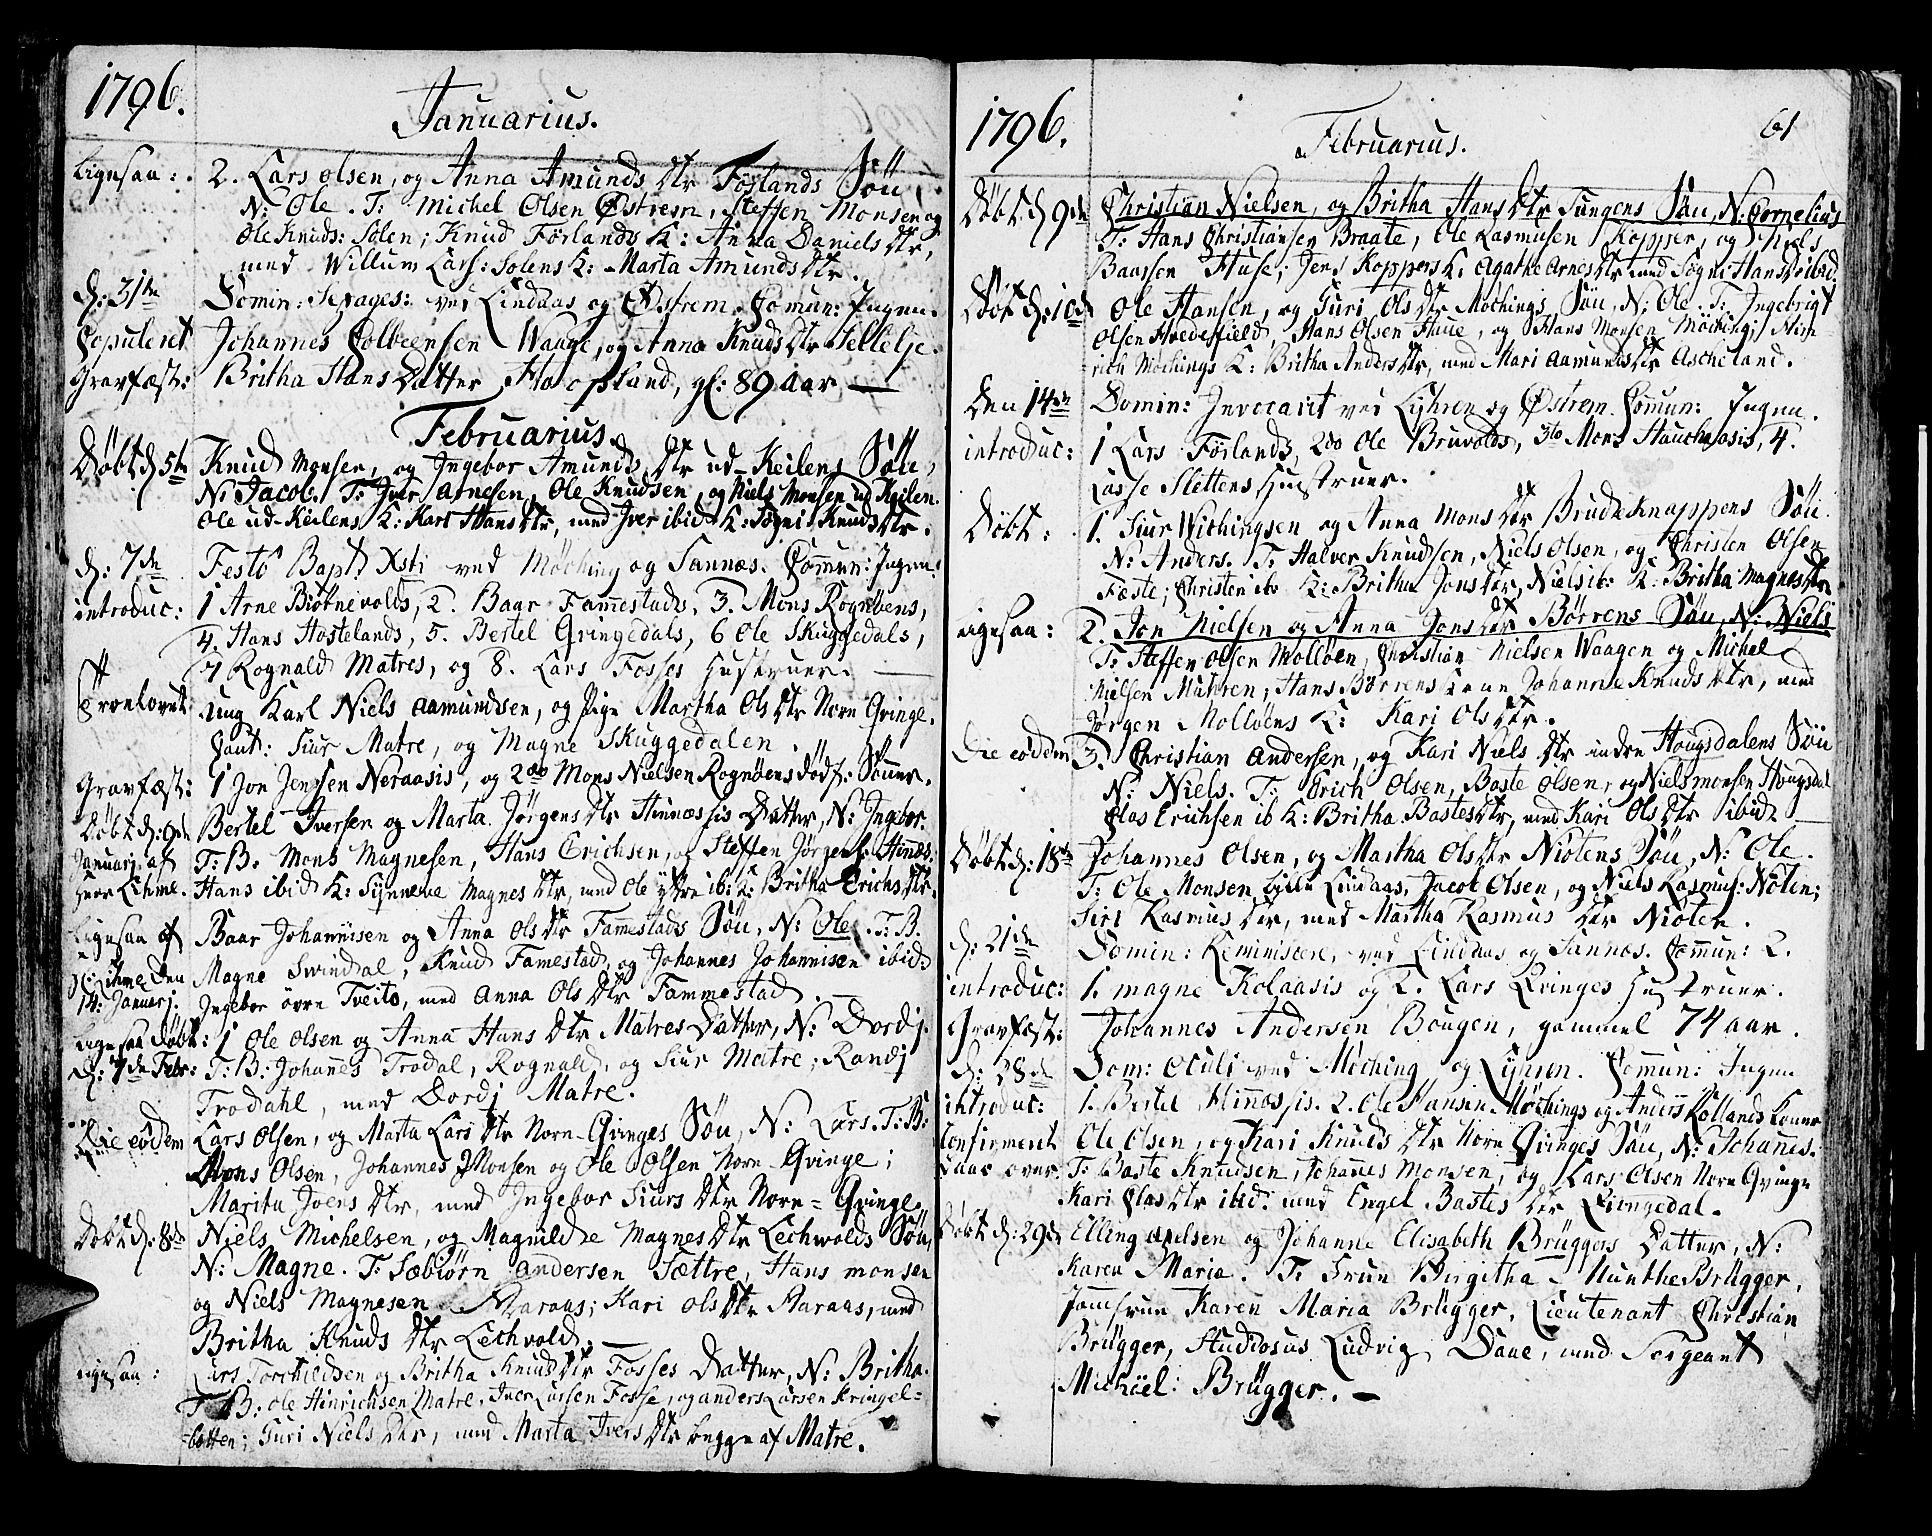 1796.
Januarius.
Ligesaa: 2. Lars Olsen, og Anna Amunds Dtr Förlands Söü,
N: Ole. T: Michel Olsen Østrem, Steffen Monsen og
Ole Knuds: Solen; Knud Förlands K: Anna Daniels Dtr,
med Willum Lars: Solens K: Marta Amunds Dtr.
d: 31te Domin: Sepages: ved Lindaas og Østrem. Comun: Ingen.
Copuleret Johannes Colbeensen Waage, og Anna Knuds Dtr Tellelje.
Gravfæst: Britha Hans Datter Hopsland, gl: 89 aar —
Februarius.
Döbt d: 5te Knud Monsen, og Ingebor Amunds Dtr ud-Keilens Söü,
N: Jacob. T: Iver Arnesen, Ole Knudsen, og Niels Monsen ud Keilen.
Ole ud-Keilens K: Kari Hans Dtr, med Iver ibid K: Sögni Knuds Dtr.
d: 7de Festo Bapt: Xsti ved Möching og Sannæs. Comun: Ingen.
introduc: 1 Arne Biötnevolds, 2. Baar Famestads, 3. Mons Rognöens,
4. Hans Hostelands, 5. Bertel Qvingedals, 6 Ole Skuggedals,
7 Rognald Matres, og 8. Lars Fosses Hustruer. —
Troulovet Ung Karl Niels Aamundsen, og Pige Martha Ols Dtr Norn Qvinge.
Caut: Siur Matre, og Magne Skuggedalen.
Gravfæst: 1 Jon Jensen Neraasis, og 2do Mons Nielsen Rognöens dödf: Sönner.
Döbt d: 6de Bertel Iversen og Marta Jörgens Dtr Hinnæssis Datter, N: Ingebor.
Januarj af T: B. Mons Magnesen, Hans Erichsen, og Steffen Jörgens: Hinæs:
Herr Lihme. Hans ibid K: Synneve Magnes Dtr, med Ole yttre ib: K: Britha Erichs Dtr.
Ligesaa af Baar Johannisen og Anna Ols Dtr Famestads Söü, N: Ole. T: B.
H: Lihme den Magne Swindal, Knud Famestad, og Johannes Johannisen ibid:
14. Januarj. Ingebor övre Tveito, med Anna Ols Dtr Fammestad. —
Ligesaa Döbt: 1 Ole Olsen og Anna Hans Dtr Matres Datter, N: Dordj.
d: 7de Febr: T: B: Johanes Trodal, Rognald, og Siur Matre; Randj
Trodahl, med Dordj Matre.
Die eodem Lars Olsen, og Marta Lars Dtr Norn-Qvinges Söü, N: Lars. T: B:
Mons Olsen, Johannes Monsen og Ole Olsen Norn-Qvinge;
Marita Joens Dtr, med Ingebor Siurs Dtr Norn-Qvinge.
Döbt d: 8de Niels Michelsen, og Magnilde Magnes Dtr Lechvolds Söü,
N: Magne. T: Sæbiörn Andersen Sættre, Hans Monsen
og Niels Magnesen Aaraas; Kari Ols Dtr Aaraas, med
Britha Knuds Dtr Lechvold. —
Ligesaa: Lars Torchildsen og Britha Knuds Dtr Fosses Datter, N: Britha.
T: B: Ole Hinrichsen Matre, Iver Larsen Fosse, og Anders Larsen Kringel=
=botten; Guri Niels Dtr, med Marta Ivers Dtr begge af Matre.
1796.
Februarius.
61
Döbt d: 9de Christian Nielsen, og Britha Hans Dtr Tungens Söü, N: Cornelius
T: Hans Christiansen Braate, Ole Rasmusen Kopper, og Niels
Baarsen Huse; Jens Koppers K: Agathe Arnes Dtr med Sögni Hans D: ibid.
Döbt d: 10de Ole Hansen, og Guri Ols Dtr Möchings Söü, N: Ole. T: Ingebrigt
Olsen Hvedefield, Hans Olsen Haue, og Hans Monsen Möching; Hin=
rich Möchings K: Britha Anders Dtr, med Kari Aamunds Dtr Ascheland.
Den 14de Domin: Invocavit ved Lyhren og Østrem. Comun: Ingen.
introduc: 1 Lars Förlands, 2do Ole Bruvolds, 3tio Mons Hauchaasis, 4.
Lasse Slettens Hustruer.
Döbt: 1. Siur Wichingsen og Anna Mons Dtr Brudeknappens Söü.
N: Anders. T: Halver Knudsen, Niels Olsen, og Christen Olsen
Feste; Christen ib: K: Britha Jons Dtr, Niels ib: K: Britha Magnes Dtr.
Ligesaa: 2. Jon Nielsen og Anna Jons Dtr Börrens Söü, N: Niels
T: Steffen Olsen Molloen, Christian Nielsen Waagen og Michel
Nielsen Muhren; Hans Börrens Kone Johanne Knuds Dtr, med
Jörgen Molloens K: Kari Ols Dtr.
Die eödem 3. Christian Andersen, og Kari Niels Dtr indre Hougsdalens Söü
N: Niels. T: Erich Olsen, Baste Olsen, og Niels Monsen Hougsdal
Clas Erichsen ib K: Britha Bastes Dtr, med Kari Ols Dtr ibid. —
Döbt d: 18de Johannes Olsen, og Martha Ols Dtr Niötens Söü, N: Ole.
T: Ole Monsen Lille Lindaas, Jacob Olsen, og Niels Rasmus: Nöten;
Siri Rasmus Dtr, med Martha Rasmus Dtr Niöten.
d: 21de Domin: Reminiscere, ved Lindaas og Sannæs. Comun: 2.
introduc: 1. Magne Kolaasis og 2. Lars Qvinges Hustruer.
Gravfæst: Johannes Andersen Bougen, gammel 74 aar.
d: 28de Dom: Oculi ved Möching og Lyhren. Comun: Ingen
introduc: 1. Bertel Hinnæssis. 2. Ole Hansen Möchings og Anders Kollands Koner
Confirmeret Ole Olsen, og Kari Knuds Dtr Norn Qvinges Söü, N: Johanes.
Daab over T: Baste Knudsen, Johanes Monsen, og Lars Olsen Norn Qvinge
Kari Clas Dtr ibid: med Engel Bastes Dtr Liongedal.
Döbt d: 29de Elling Axelsen og Johanne Elisabeth Brüggers Datter, N:
Karen Maria. T: Frue Birgitha Munthe Brügger,
Jomfrue Karen Maria Brügger, Lieutenant Christian
Brügger, Studiosus Ludvig Daae, med Sergeant
Michäel: Brügger. —